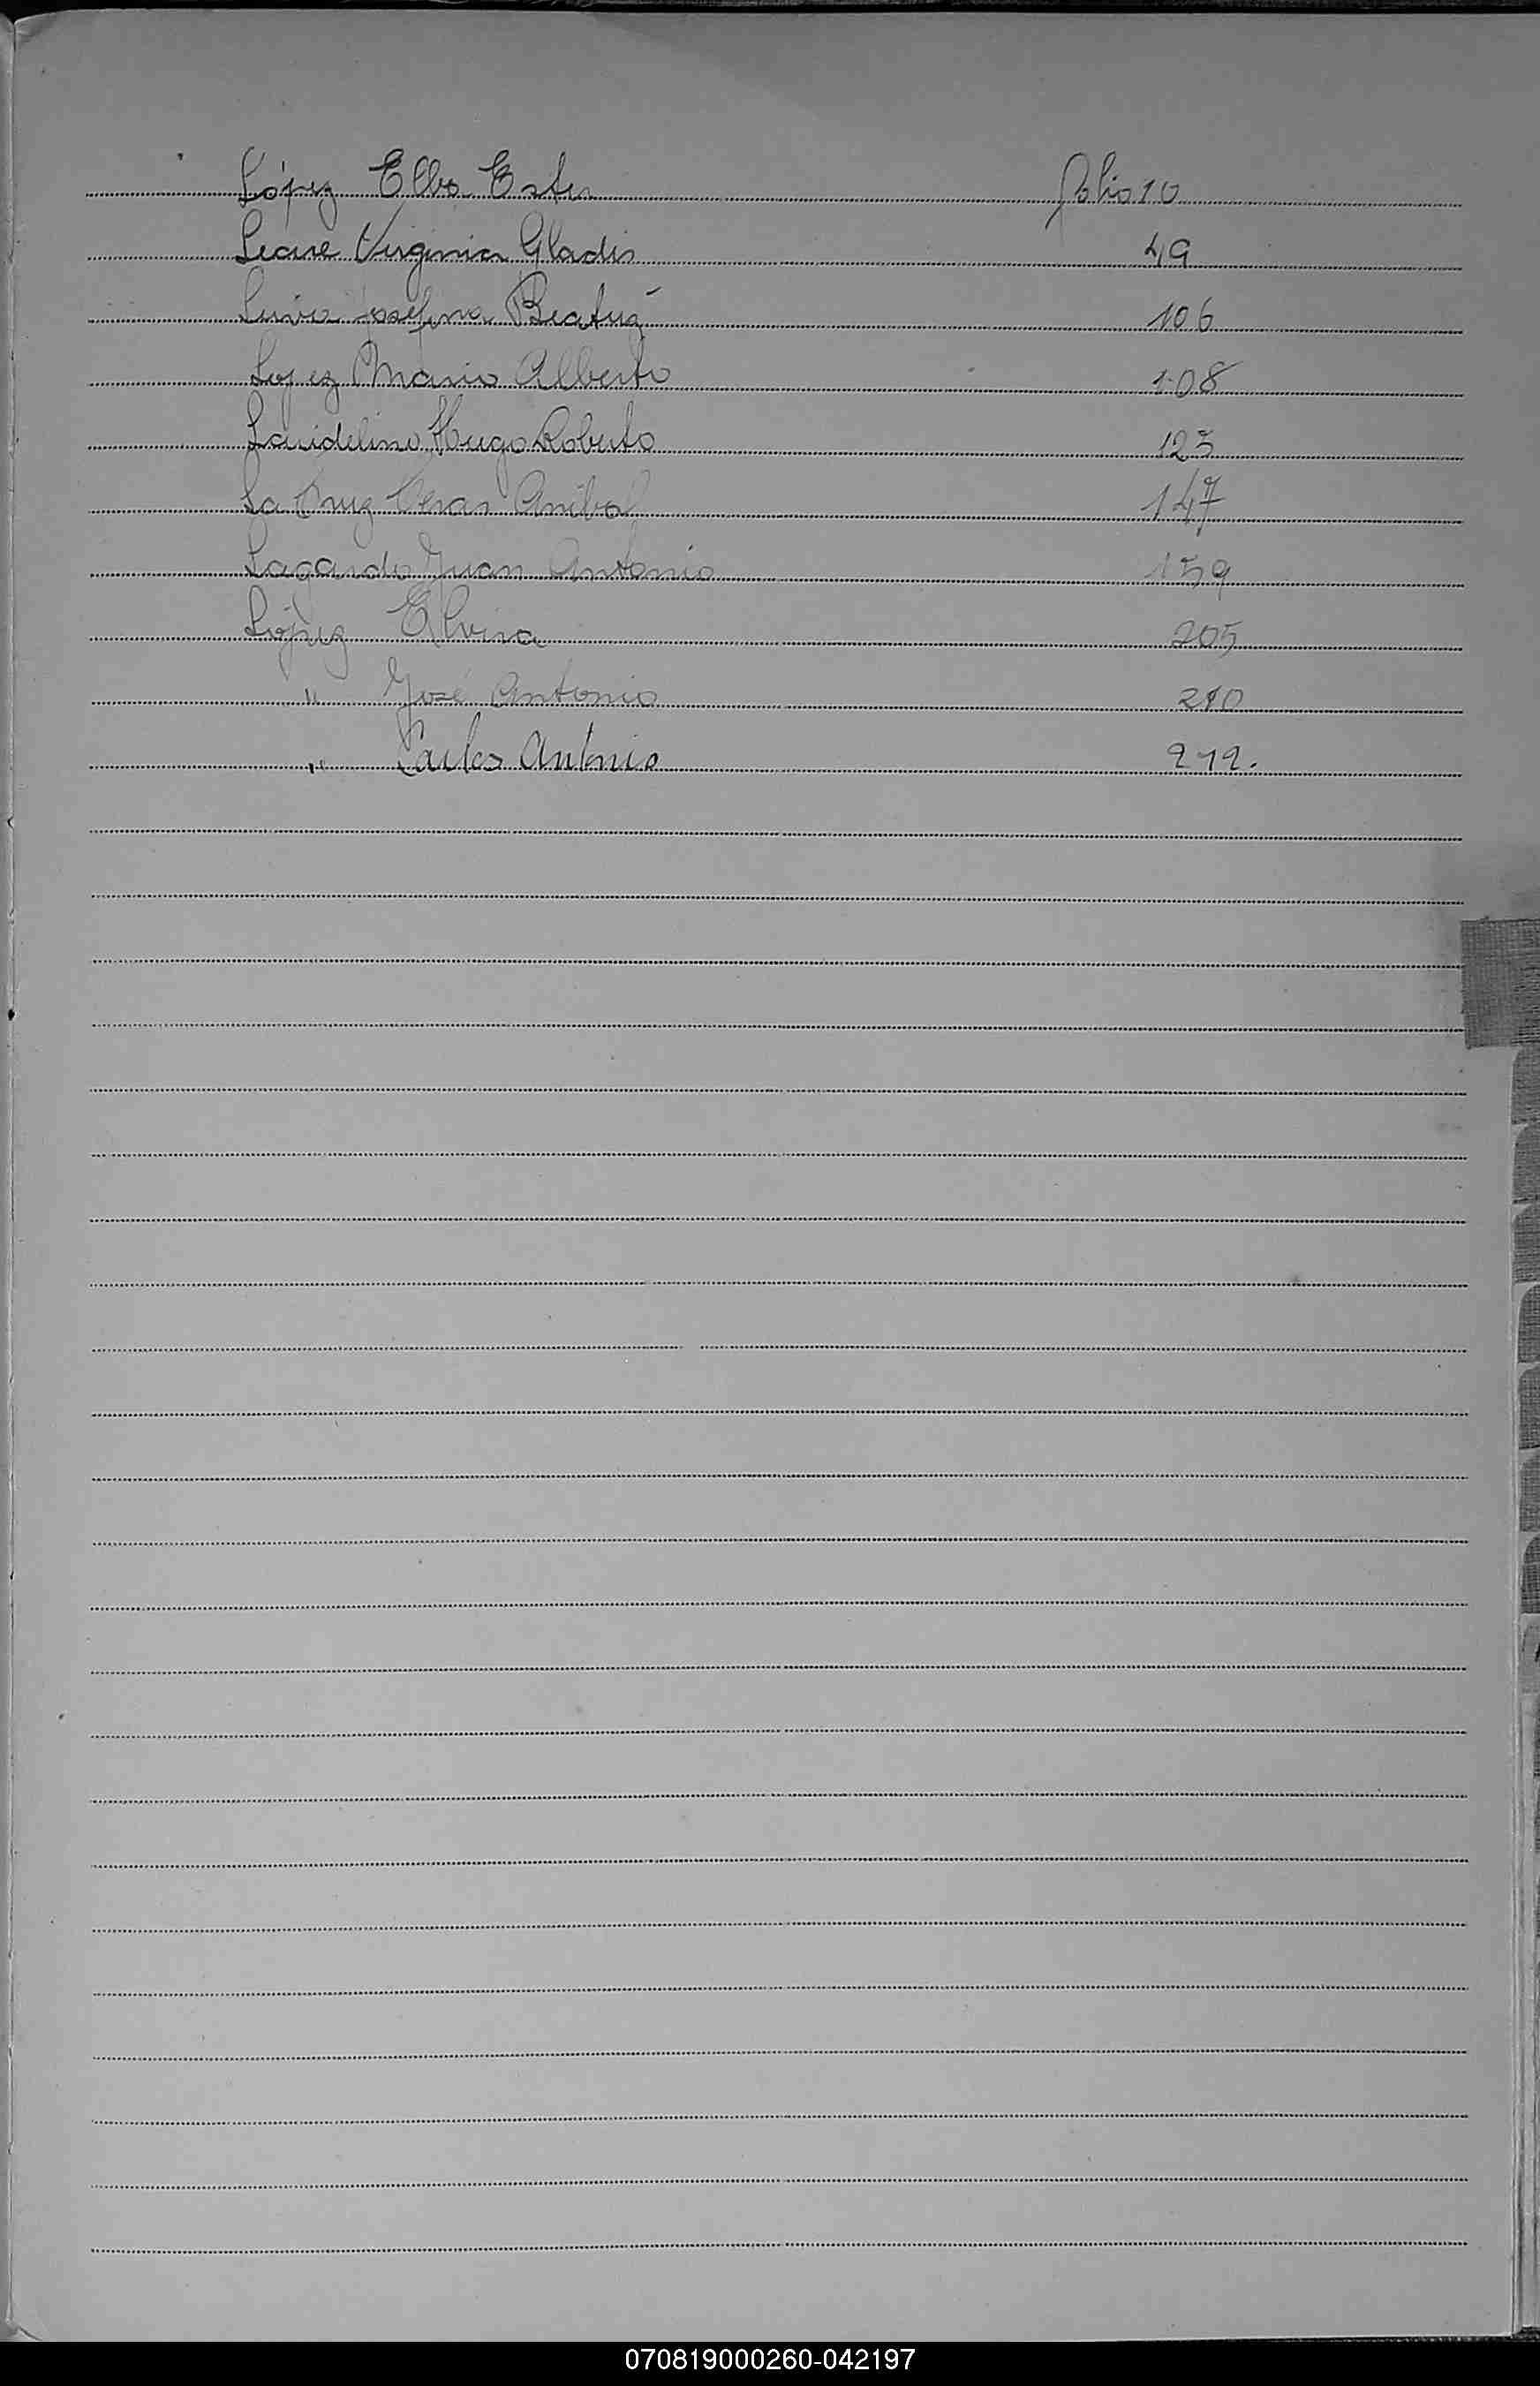 López Elba Ester folio 10
Virginia Gladis 49
Leiva Josefina Beatriz 106
Lopez Mario Alberto 108
Hugo Roberto 123
La Cruz Cesar Anibal 147
Lagardo Juan Antonio 159
López Elvira 205
" José Antonio 210
" Carlos Antonio 212.
070819000260-042197